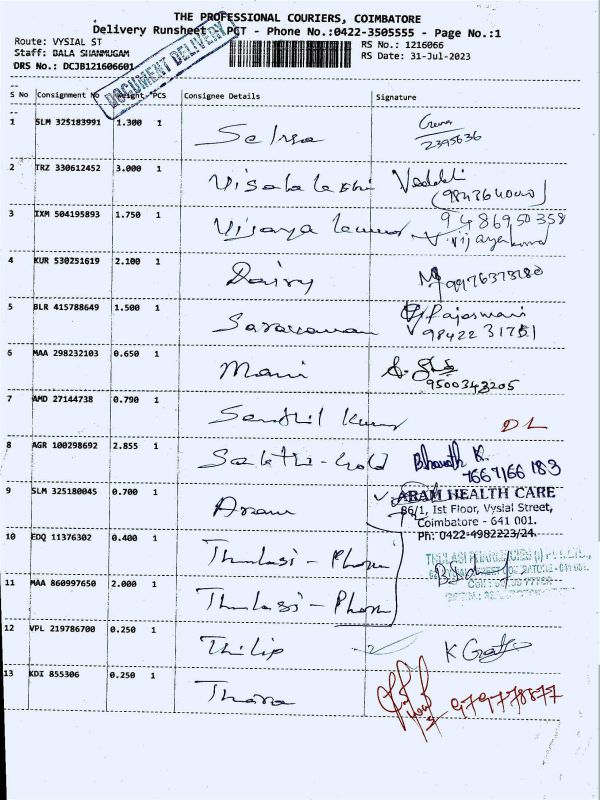 THE PROFESSIONAL COURIERS, COIMBATORE
Delivery Runsheet - PGT - Phone No.:0422-3505555 - Page No.:1
Route: VYSIAL ST
RS No.: 1216066
Staff: BALA SHANMUGAM
RS Date: 31-Jul-2023
DRS No.: DCJB121606601
DOCUMENT DELIVERY
S No Consignment No Weight PCS Consignee Details Signature
1 SLM 325183991 1.300 1
2395636
2 TRZ 330612452 3.000 1 Visalalakshi
3 IXM 504195893 1.750 1 Vijaya kumar 9486950358
Vijayakumar
4 KUR 530251619 2.100 1 Dairy
5 BLR 415788649 1.500 1 Saravanan
6 MAA 298232103 0.650 1 Mani
9500343205
7 AMD 27144738 0.790 1 Senthil Kumar DL
8 AGR 100298692 2.855 1 Sakthi-Gold Bharath K.
7667166 183
9 SLM 325180045 0.700 1 Aram
ARAM HEALTH CARE
86/1, Ist Floor, Vysial Street,
Coimbatore - 641 001.
Ph: 0422-4982223/24.
10 EDQ 11376302 0.400 1 Thulasi - Pharm
11 MAA 860997650 2.000 1 Thulasi - Pharm
12 VPL 219786700 0.250 1 Thilip
13 KDI 855306 0.250 1 Thara